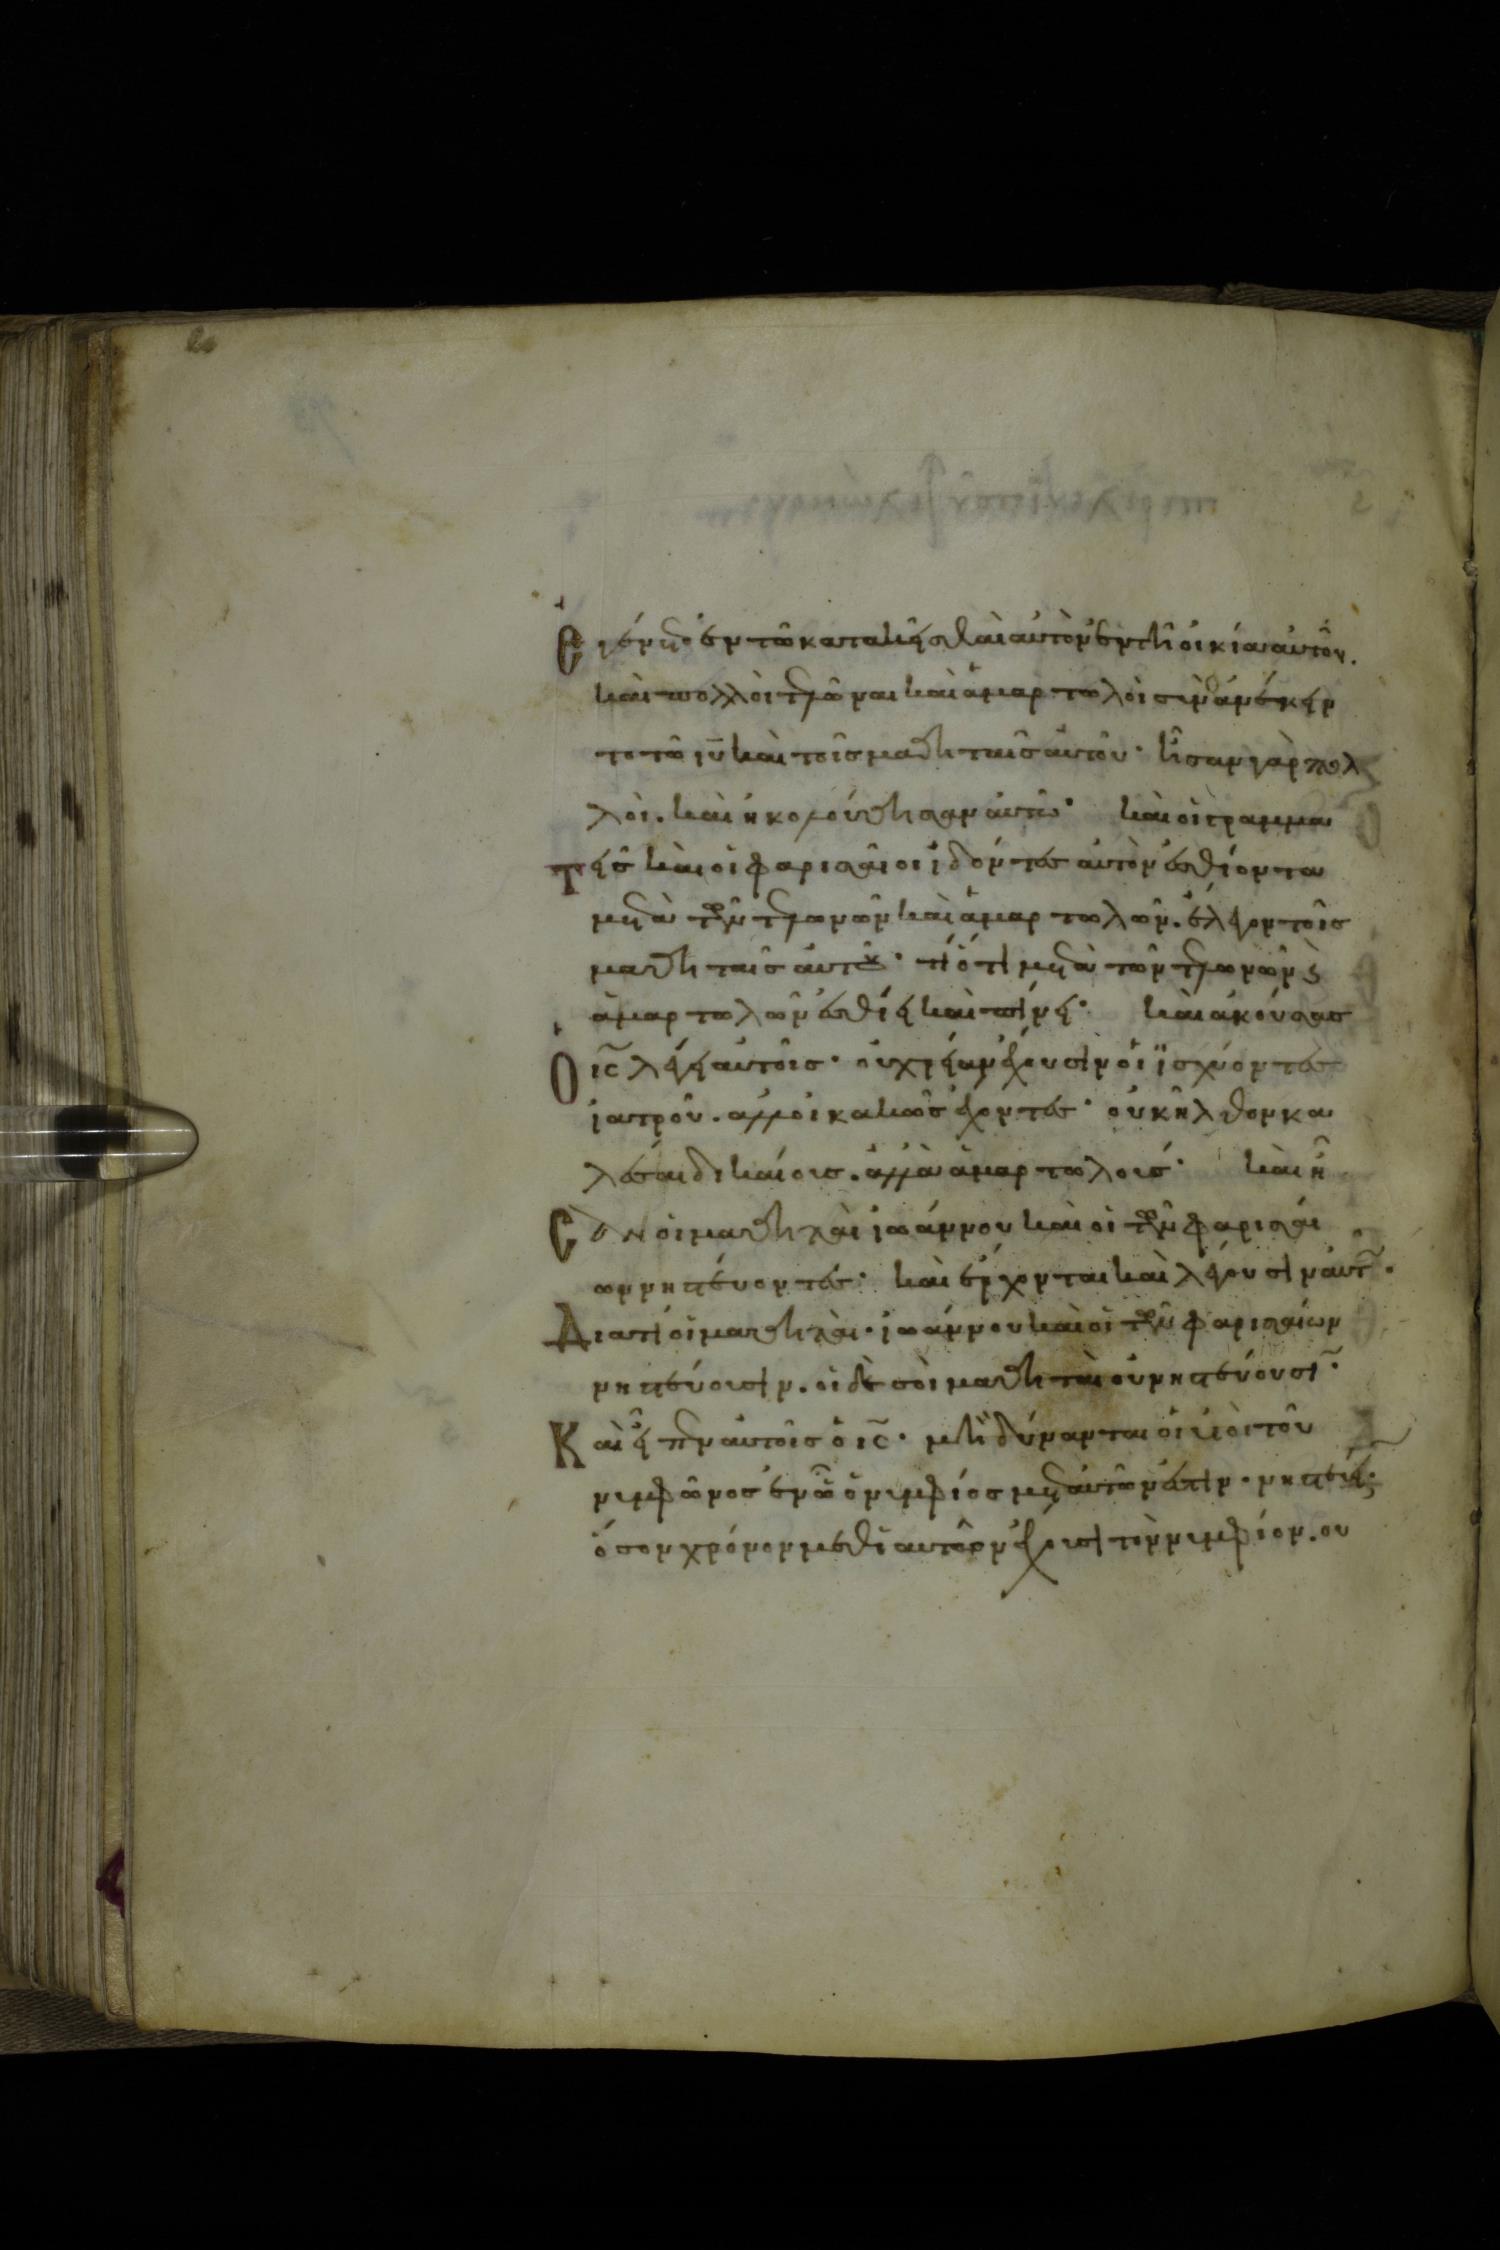 Ἐγένετο ἐν τῶ κατακεῖσθαι αὐτὸν ἐν τῆ οἰκία αὐτοῦ.
καὶ πολλοὶ τελῶναι καὶ ἁμαρτωλοὶ συνανέκειν
το τῶ ιυ καὶ τοῖς μαθηταῖς αὐτοῦ· ἦσαν γὰρ πολ
λοὶ. καὶ ἠκολούθησαν αὐτῶ· καὶ οἱ γραμμα
τεῖς καὶ οἱ φαρισαῖοι ἰδόντες αὐτὸν ἐσθίοντα
μετὰ τῶν τελωνῶν καὶ ἁμαρτωλῶν. ἔλεγον τοῖς
μαθηταῖς αὐτοῦ· τί ὅτι μετὰ τῶν τελωνῶν ϛ
ἁμαρτωλῶν ἐσθίει καὶ πίνει· καὶ ἀκούσας
Ὁ ις λέγει αὐτοῖς· οὐ χρείαν ἔχουσιν οἱ ἰσχύοντες
ἰατροῦ. ἀλλ οἱ κακῶς ἔχοντες· οὐκ ἦλθον κα
λέσαι δικαίους. ἀλλὰ ἁμαρτωλούς· καὶ ἦ
Σὰν οἱ μαθηταὶ ἰωάννου καὶ οἱ τῶν φαρισαί
ων νηστεύοντες· καὶ ἔρχονται καὶ λέγουσιν αὐτ·
Διατί οἱ μαθηταὶ· ἰωάννου καὶ οἱ τῶν φαρισαίων
νηστεύουσιν. οἱ δὲ σοὶ μαθηταὶ οὐ νηστεύουσι·
Καὶ εἶπεν αὐτοῖς ὁ ις· μὴ δύνανται οἱ υἱοὶ τοῦ
νυμφῶνος ἐν ὧ ὁ νυμφίος μετ αὐτῶν ἐστιν. νηστεύειν·
ὅσον χρόνον μεθ ἑαυτῶν ἔχουσι τὸν νυμφίον. ου